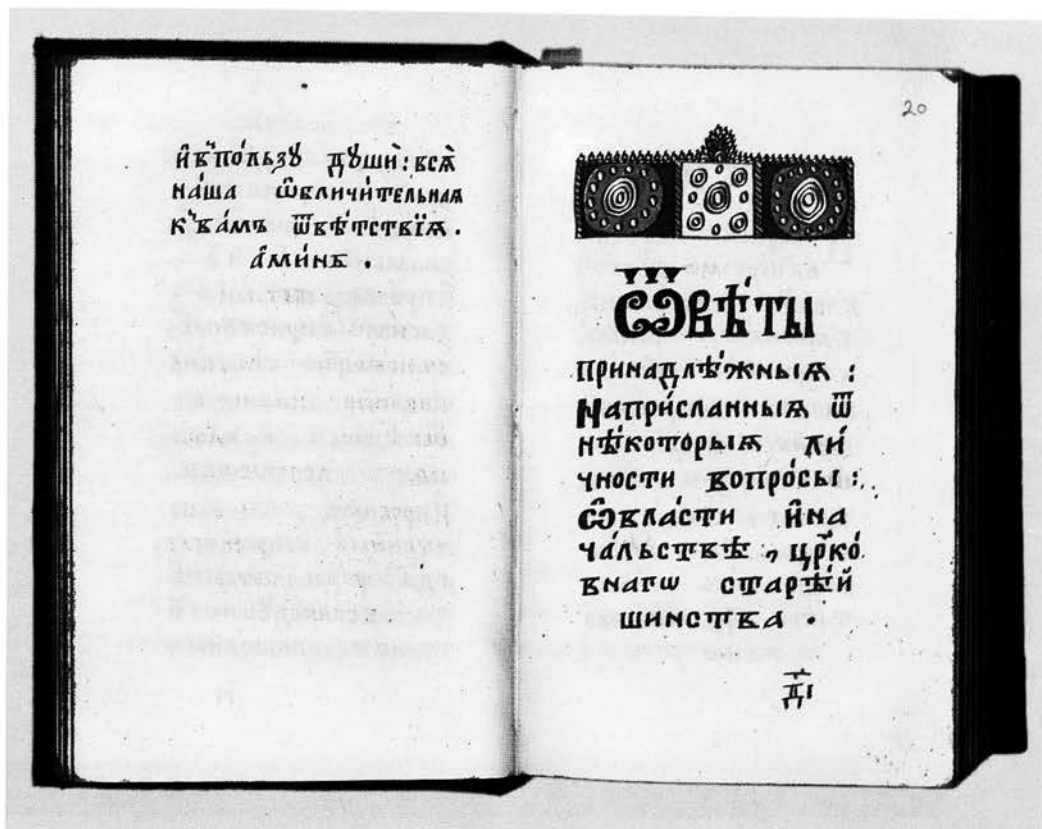 и҆въ по́льзꙋ дꙋшѝ: всѧ̀
на́ша ѡ҆бличи́тельнаѧ
къ ва́мъ ѿвѣ́тствїѧ.
а҆ми́нь.
20
Ѿвѣ́ты
принадлѣ́жныѧ:
На при́сланныѧ ѿ
нѣ́которыѧ ли́
чности вопро́сы:
Ѡ҆ вла́сти и҆ на
ча́льствѣ, цр҃ко́
внагѡ старѣ́й
шинства.
д҃і